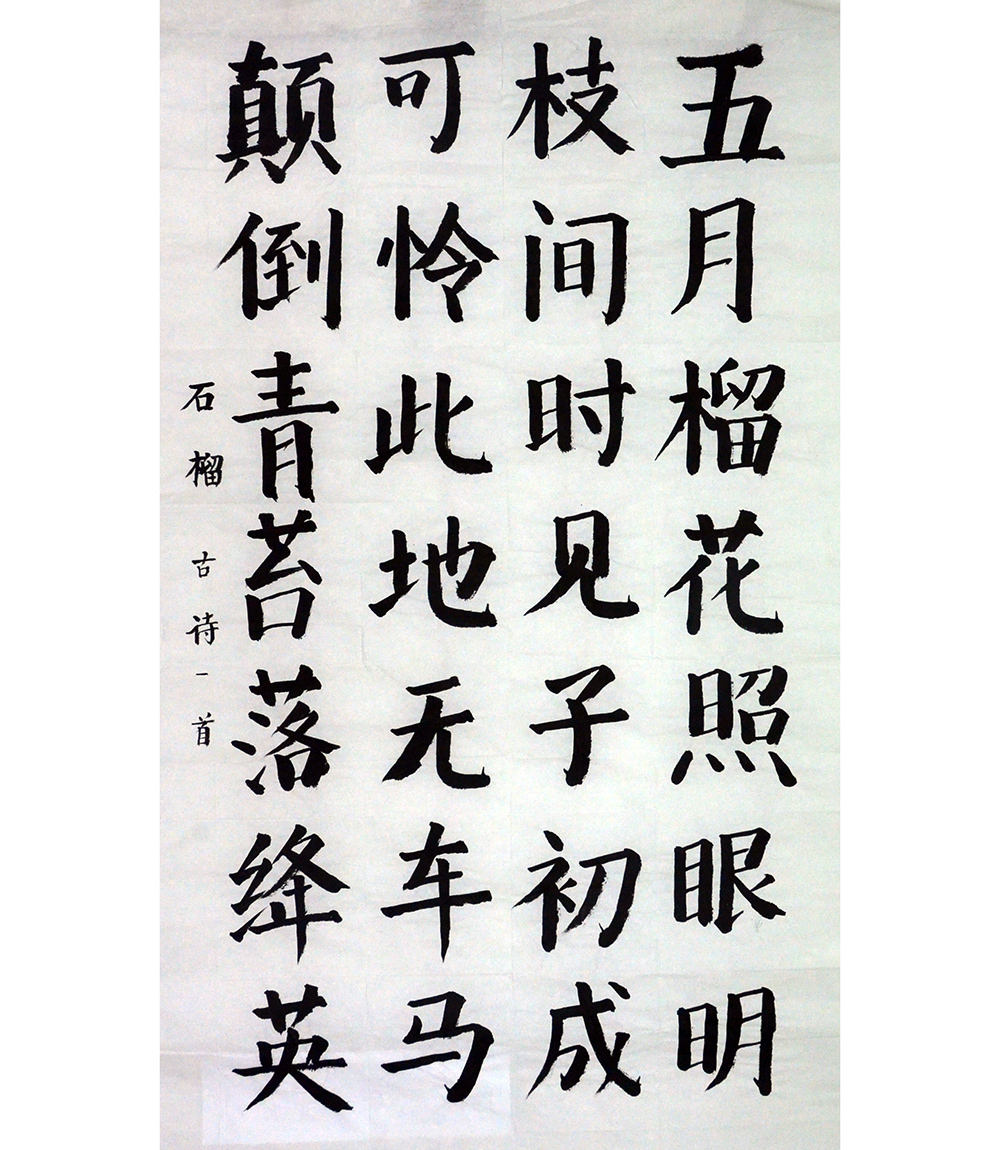 五月榴花照眼明
枝间时见子初成
可怜此地无车马
颠倒青苔落绛英
石榴 古诗一首